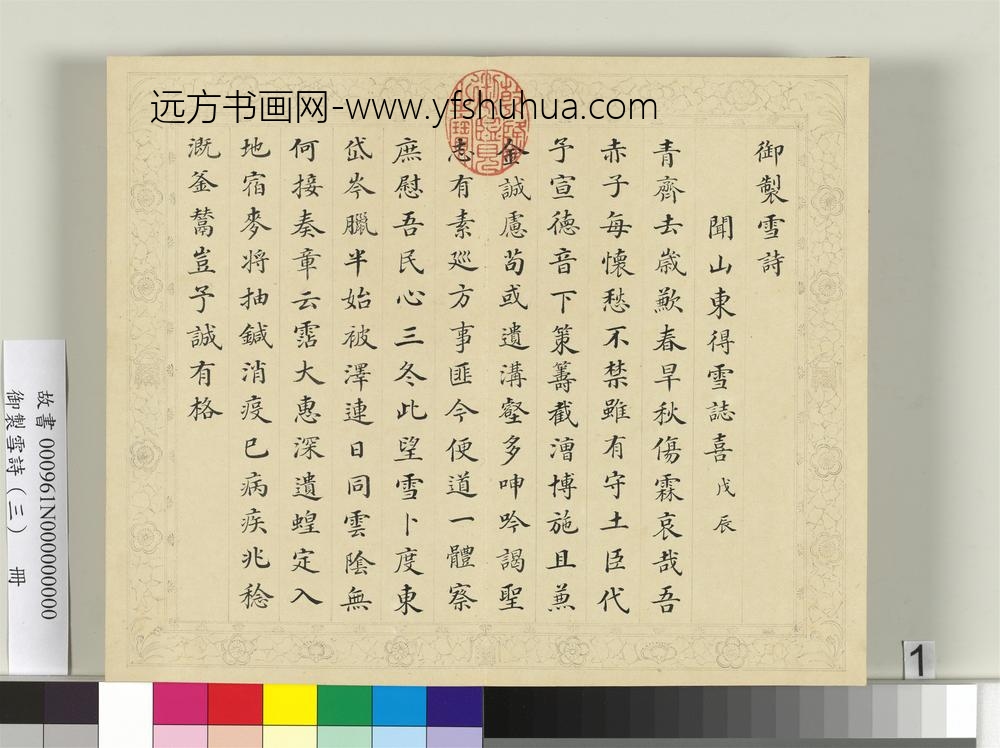 远方书画网-www.yfshuhua.com
御製雪詩
聞山東得雪誌喜戊辰
青齊去歲歉春旱秋傷霖哀哉吾
赤子每懷愁不禁雖有守土臣代
予宣德音下策籌截漕博施且兼
金誠慮苟或遺溝壑多呻吟謁聖
志有素巡方事匪今便道一體察
庶慰吾民心三冬此望雪卜度東
岱岑臘半始被澤連日同雲陰無
何接奏章云霑大惠深遺蝗定入
地宿麥将抽鍼消疫已病疾兆稔
溉釜鬵豈予誠有格
故書 000961N000000000
御製雪詩(三) 冊
1